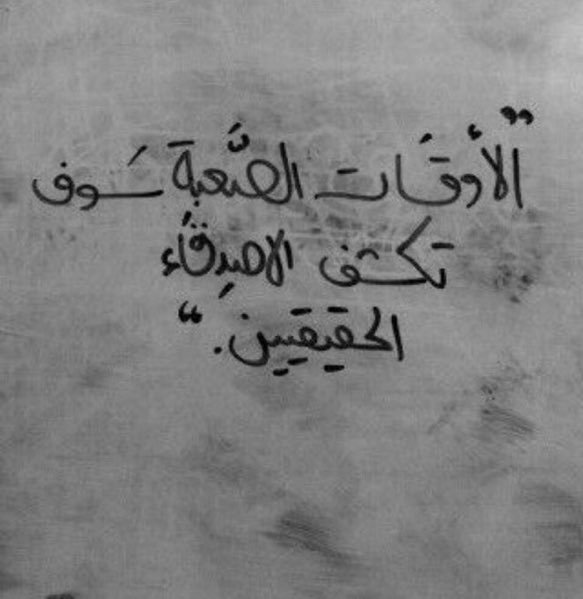 "الأوقَات الصَّعبة سَوف
تكشف الاصدِقَاء
الحقيقيين."